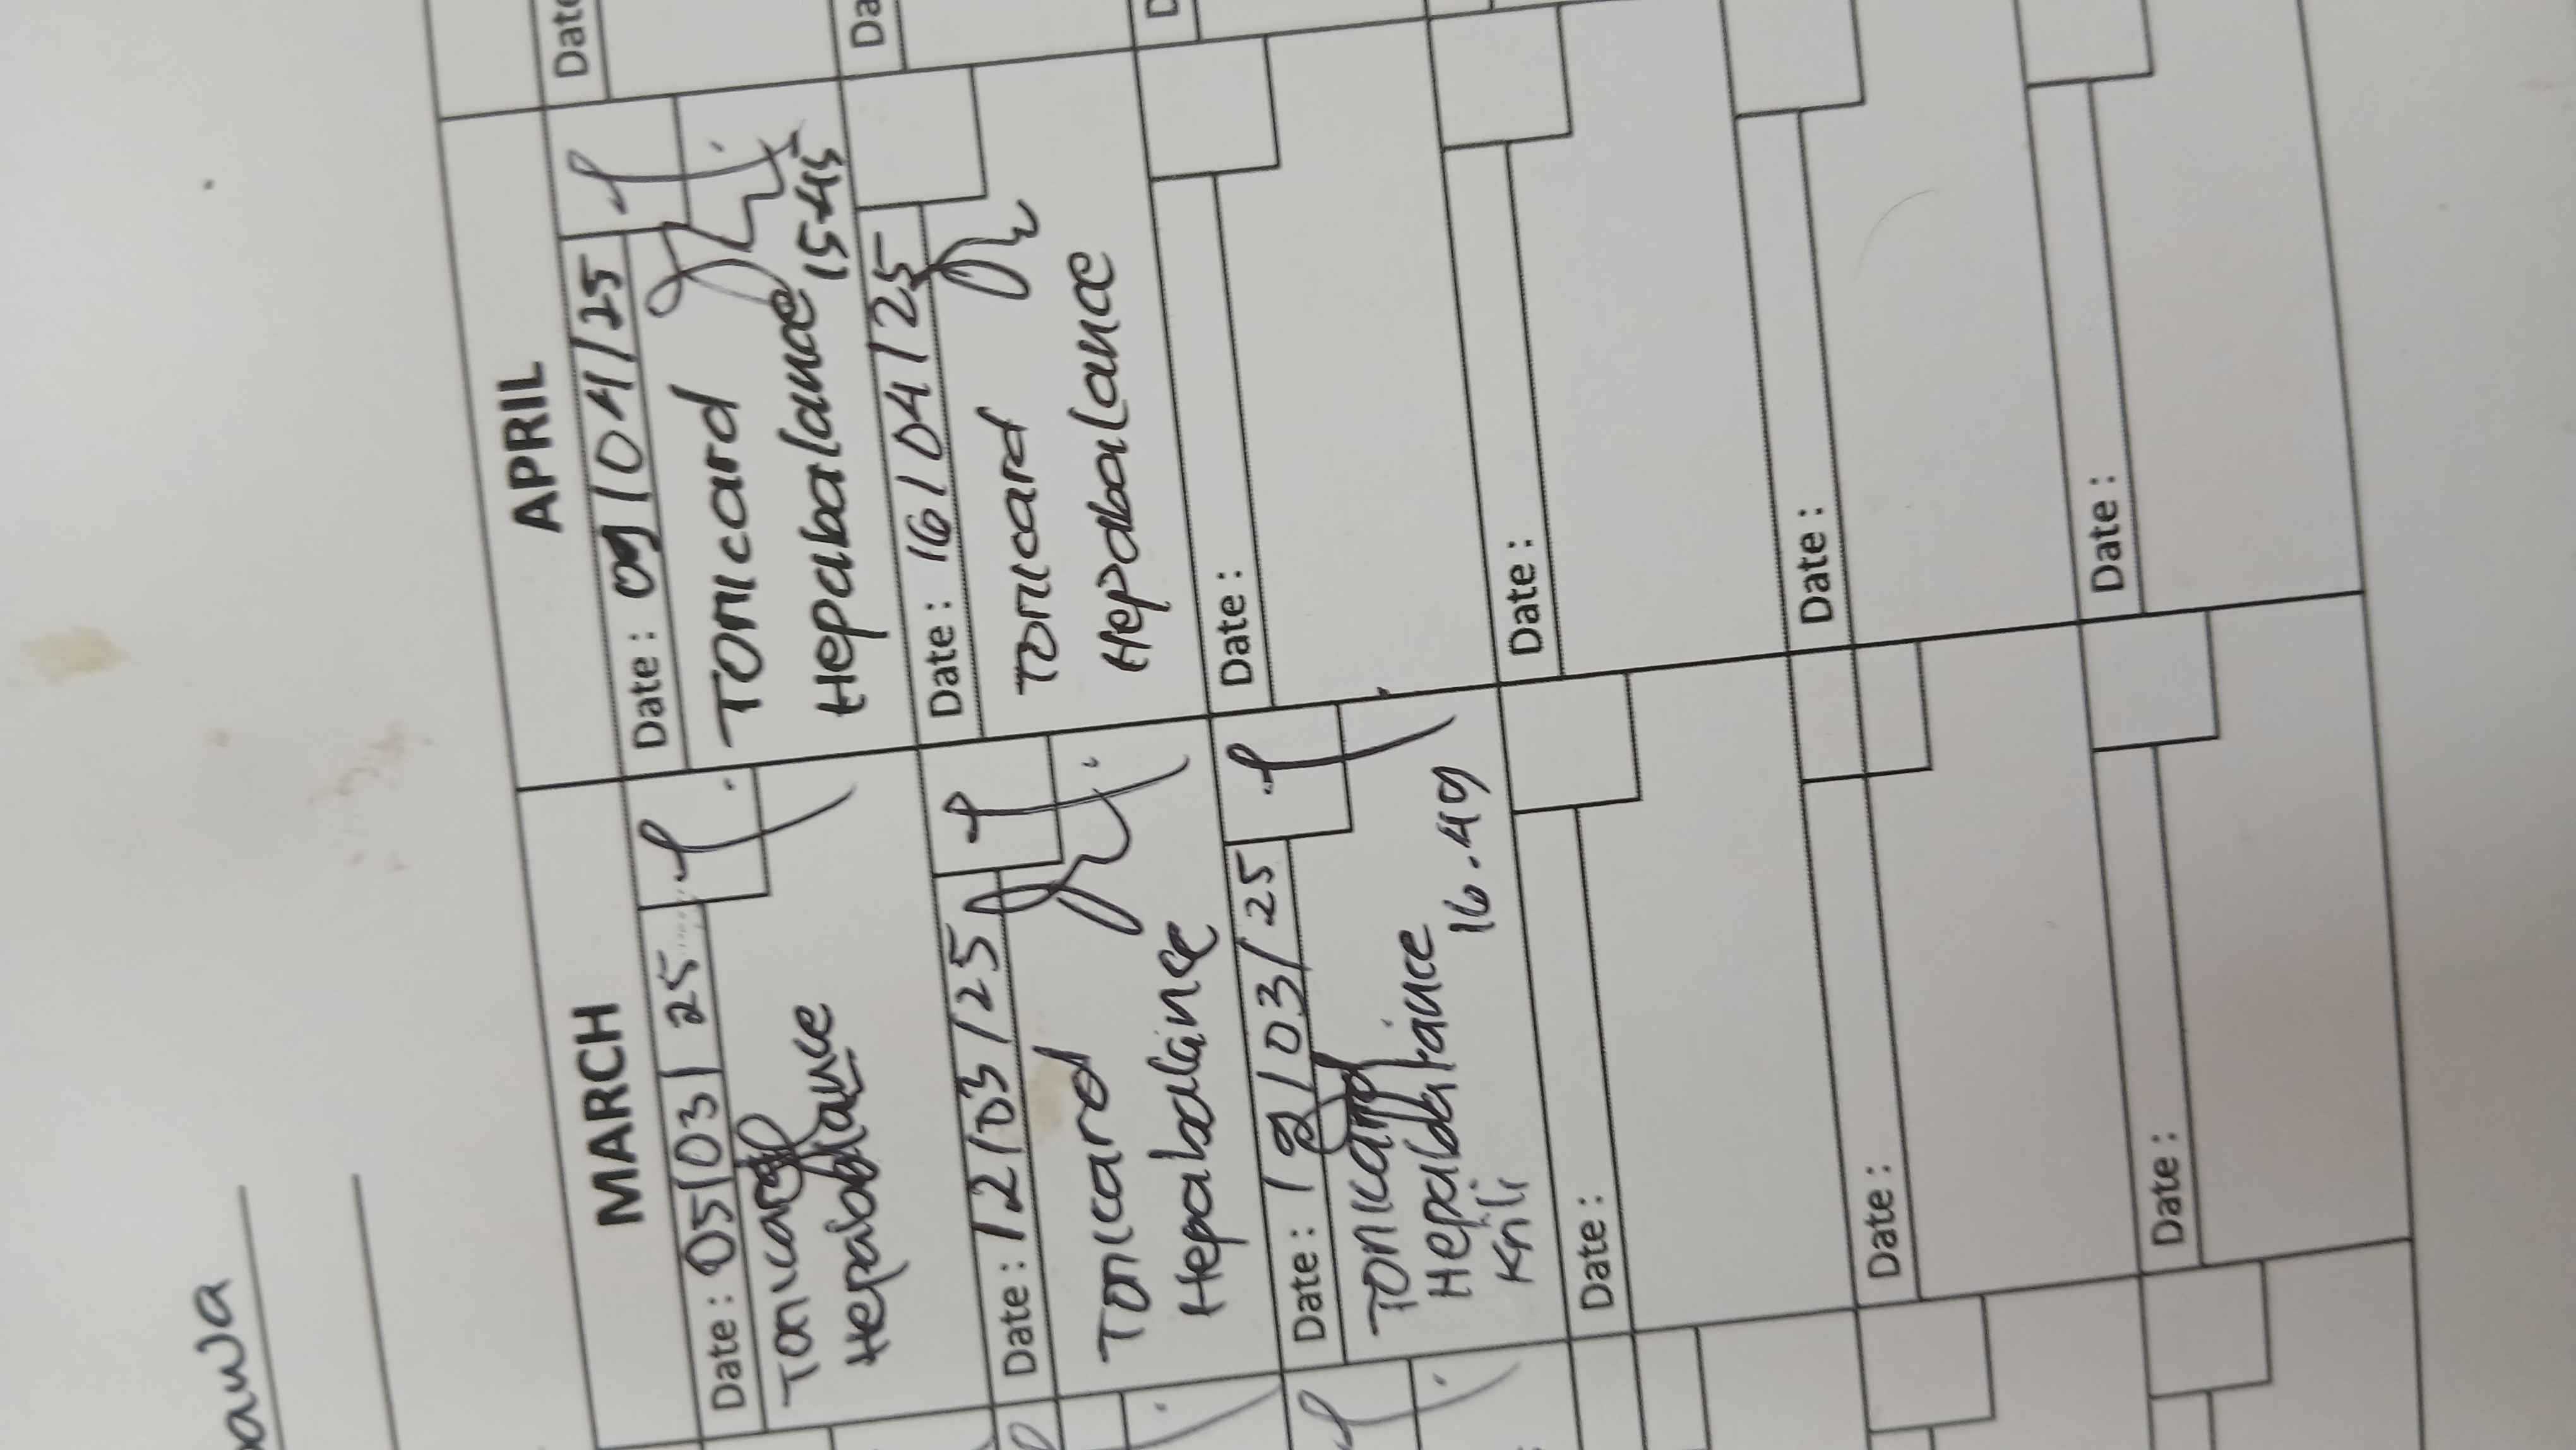 MARCH
Date : 05/03/25
Tonicard
Hepabalance
Date : 12/03/25
Tonicard
Hepabalance
Date : 19/03/25
Tonicard
16.49
Date :
Date :
Date :
APRIL
Date : 09/04/25
Tonicard
Hepabalance
15.45
Date : 16/04/25
Tonicard
Hepabalance
Date :
Date :
Date :
Date :